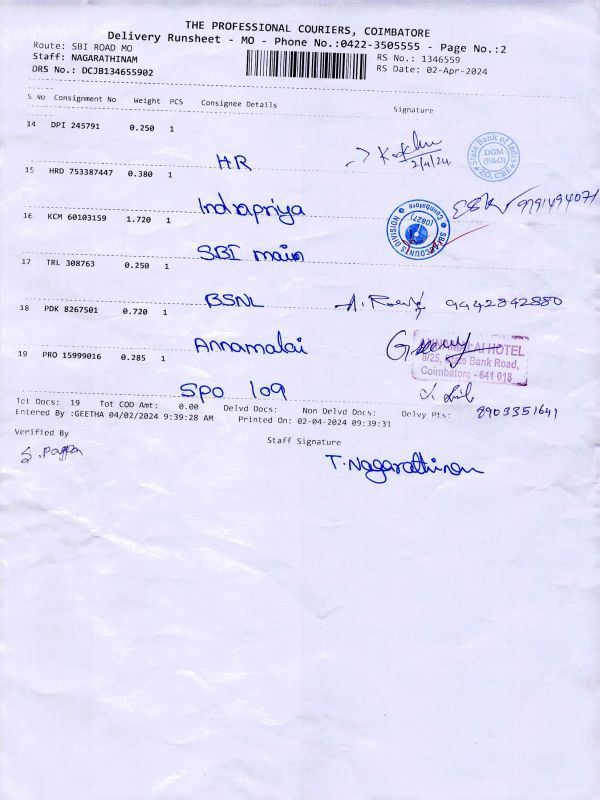 THE PROFESSIONAL COURIERS, COIMBATORE
Delivery Runsheet - MO - Phone No.:0422-3505555 - Page No.:2
Route: SBI ROAD MO
RS No.: 1346559
Staff: NAGARATHINAM
RS Date: 02-Apr-2024
DRS No.: DCJB134655902
S No Consignment No Weight PCS Consignee Details Signature
14 DPI 245791 0.250 1
HR
2/4/24
State Bank of India
DGM
(B&O)
ZO, CBE
15 HRD 753387447 0.380 1
Indrapriya
9791494071
16 KCM 60103159 1.720 1
SBI main
Coimbatore
(0827)
17 TRL 308763 0.250 1
BSNL
9442842880
18 PDK 8267501 0.720 1
Annamalai
HOTEL
8/25, State Bank Road,
Coimbatore - 641 018
19 PRO 15999016 0.285 1
SPO 109
Tot Docs: 19 Tot COD Amt: 0.00 Delvd Docs: Non Delvd Docs: Delvy Pts:
8903351641
Entered By :GEETHA 04/02/2024 9:39:28 AM Printed On: 02-04-2024 09:39:31
Verified By
Staff Signature
T. Nagarathinam